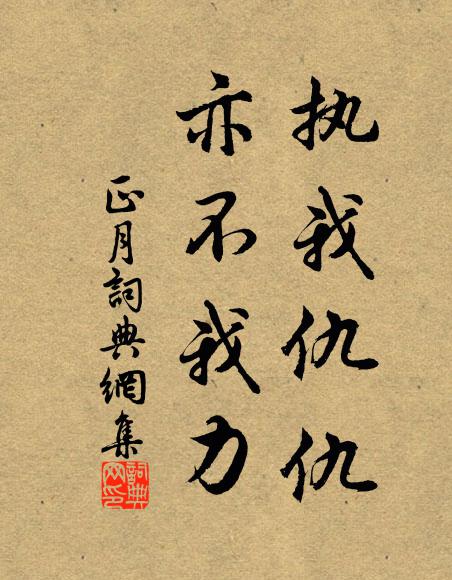 执我仇仇
亦不我力
正月詞典網集
詞典
网印